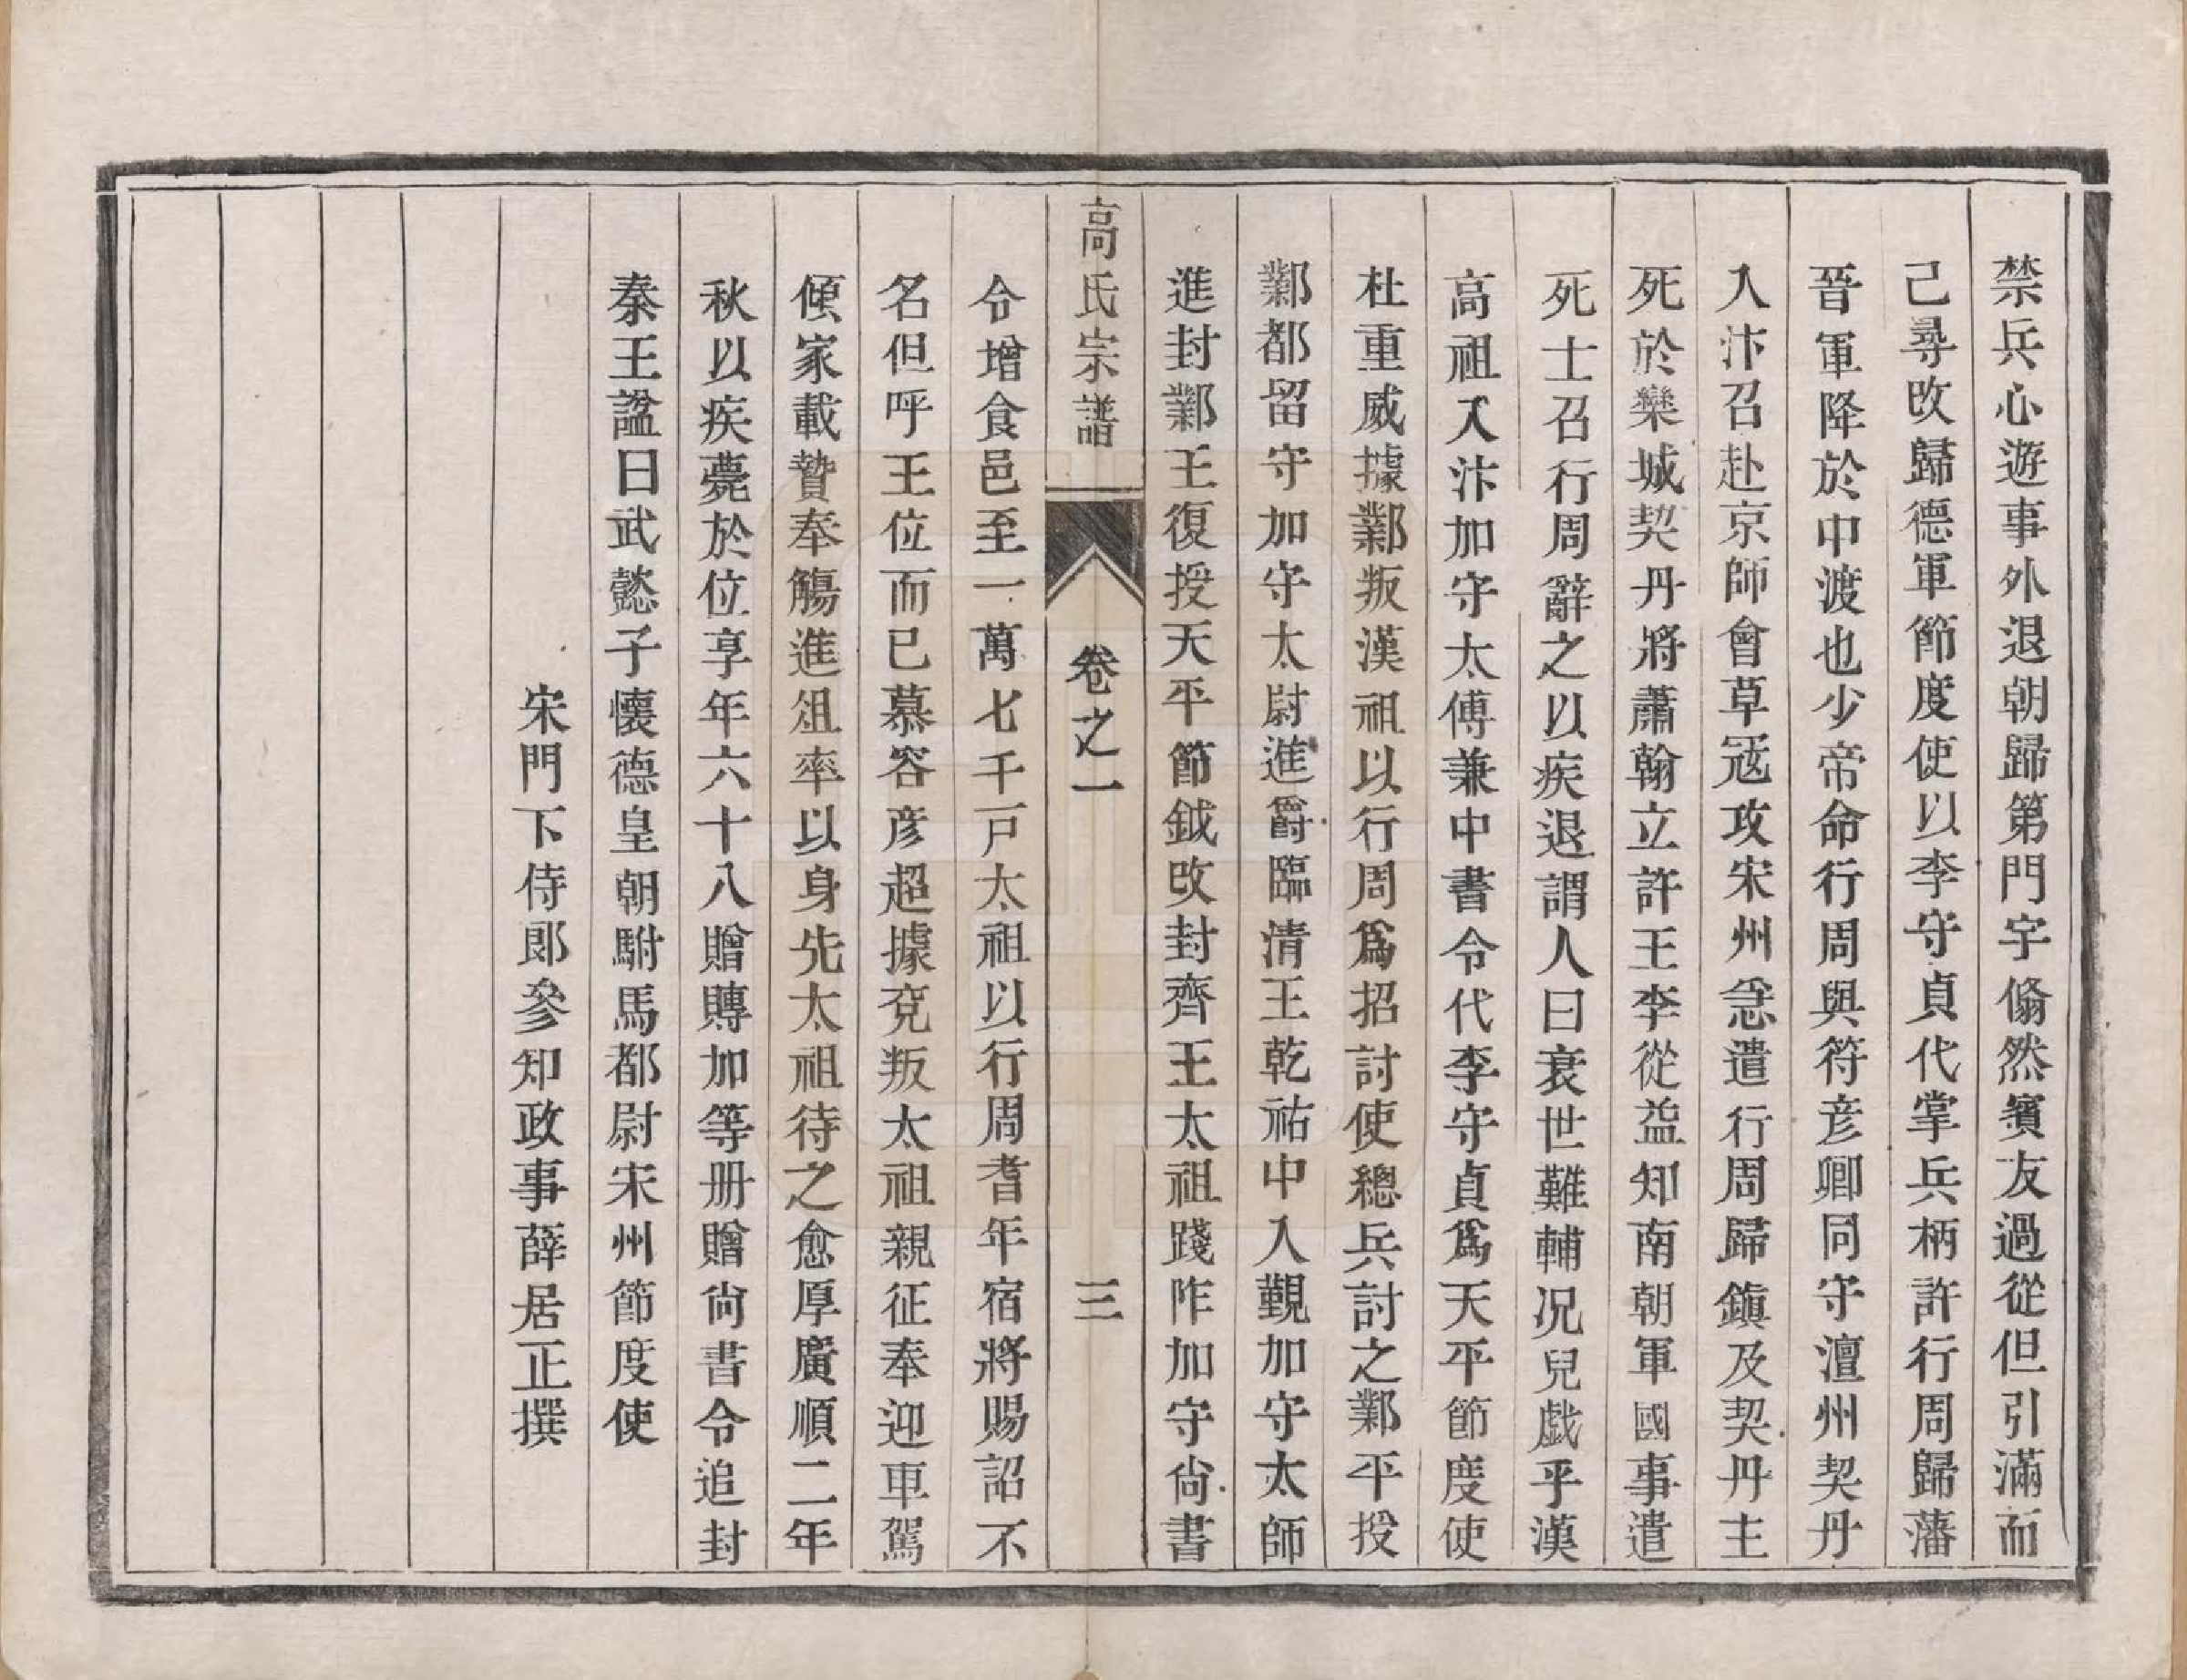 禁兵心遊事外退朝歸第門宇翛然賓友過從但引滿而
己尋改歸德軍節度使以李守貞代掌兵柄許行周歸藩
晉軍降於中渡也少帝命行周與符彥卿同守澶州契丹
入汴召赴京師會草寇攻宋州急遣行周歸鎮及契丹主
死於欒城契丹將蕭翰立許王李從益知南朝軍國事遣
死士召行周辭之以疾退謂人曰衰世難輔况兒戯乎漢
高祖入汴加守太傅兼中書令代李守貞爲天平節度使
杜重威據鄴叛漢祖以行周爲招討使總兵討之鄴平授
鄴都留守加守太尉進爵臨清王乾祐中入覲加守太師
進封鄴王復授天平節鉞改封齊王太祖踐阼加守尙書
高氏宗譜 卷之一 三
令增食邑至一萬七千戸太祖以行周耆年宿將賜詔不
名但呼王位而已慕容彥超據兗叛太祖親征奉迎車駕
傾家載贄奉觴進俎率以身先太祖待之愈厚廣順二年
秋以疾薨於位享年六十八贈賻加等册贈尙書令追封
秦王諡曰武懿子懷德皇朝駙馬都尉宋州節度使
宋門下侍郎參知政事薛居正撰